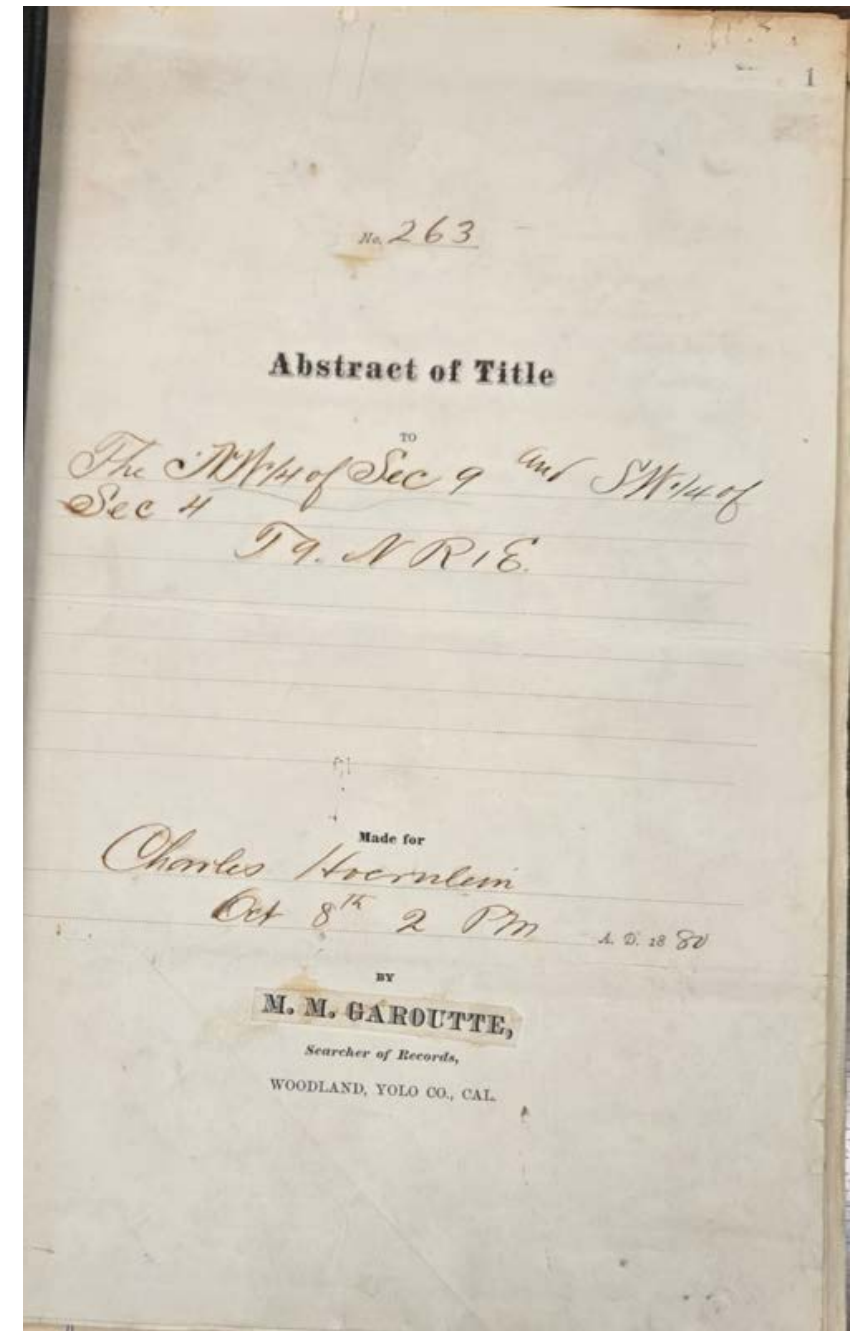 1
No. 263
Abstract of Title
TO
The NW 1/4 of Sec 9 and SW 1/4 of
Sec 4
T9. N R1E.
Made for
Charles Hoernlein
Oct 8th 2 PM A. D. 1880
BY
M. M. GAROUTTE,
Searcher of Records,
WOODLAND, YOLO CO., CAL.